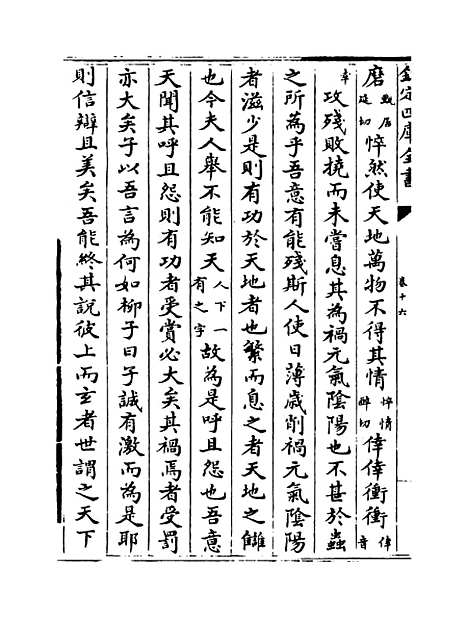 欽定四庫全書 卷十六
磨甄居延切悴然使天地萬物不得其情悴情醉切倖倖衝衝倖音
幸攻殘敗撓而未嘗息其為禍元氣陰陽也不甚於蟲
之所為乎吾意有能殘斯人使日薄歲削禍元氣陰陽
者滋少是則有功於天地者也繁而息之者天地之讎
也今夫人舉不能知天人下一有之字故為是呼且怨也吾意
天聞其呼且怨則有功者受賞必大矣其禍焉者受罰
亦大矣子以吾言為何如柳子曰子誠有激而為是耶
則信辯且美矣吾能終其說彼上而玄者世謂之天下